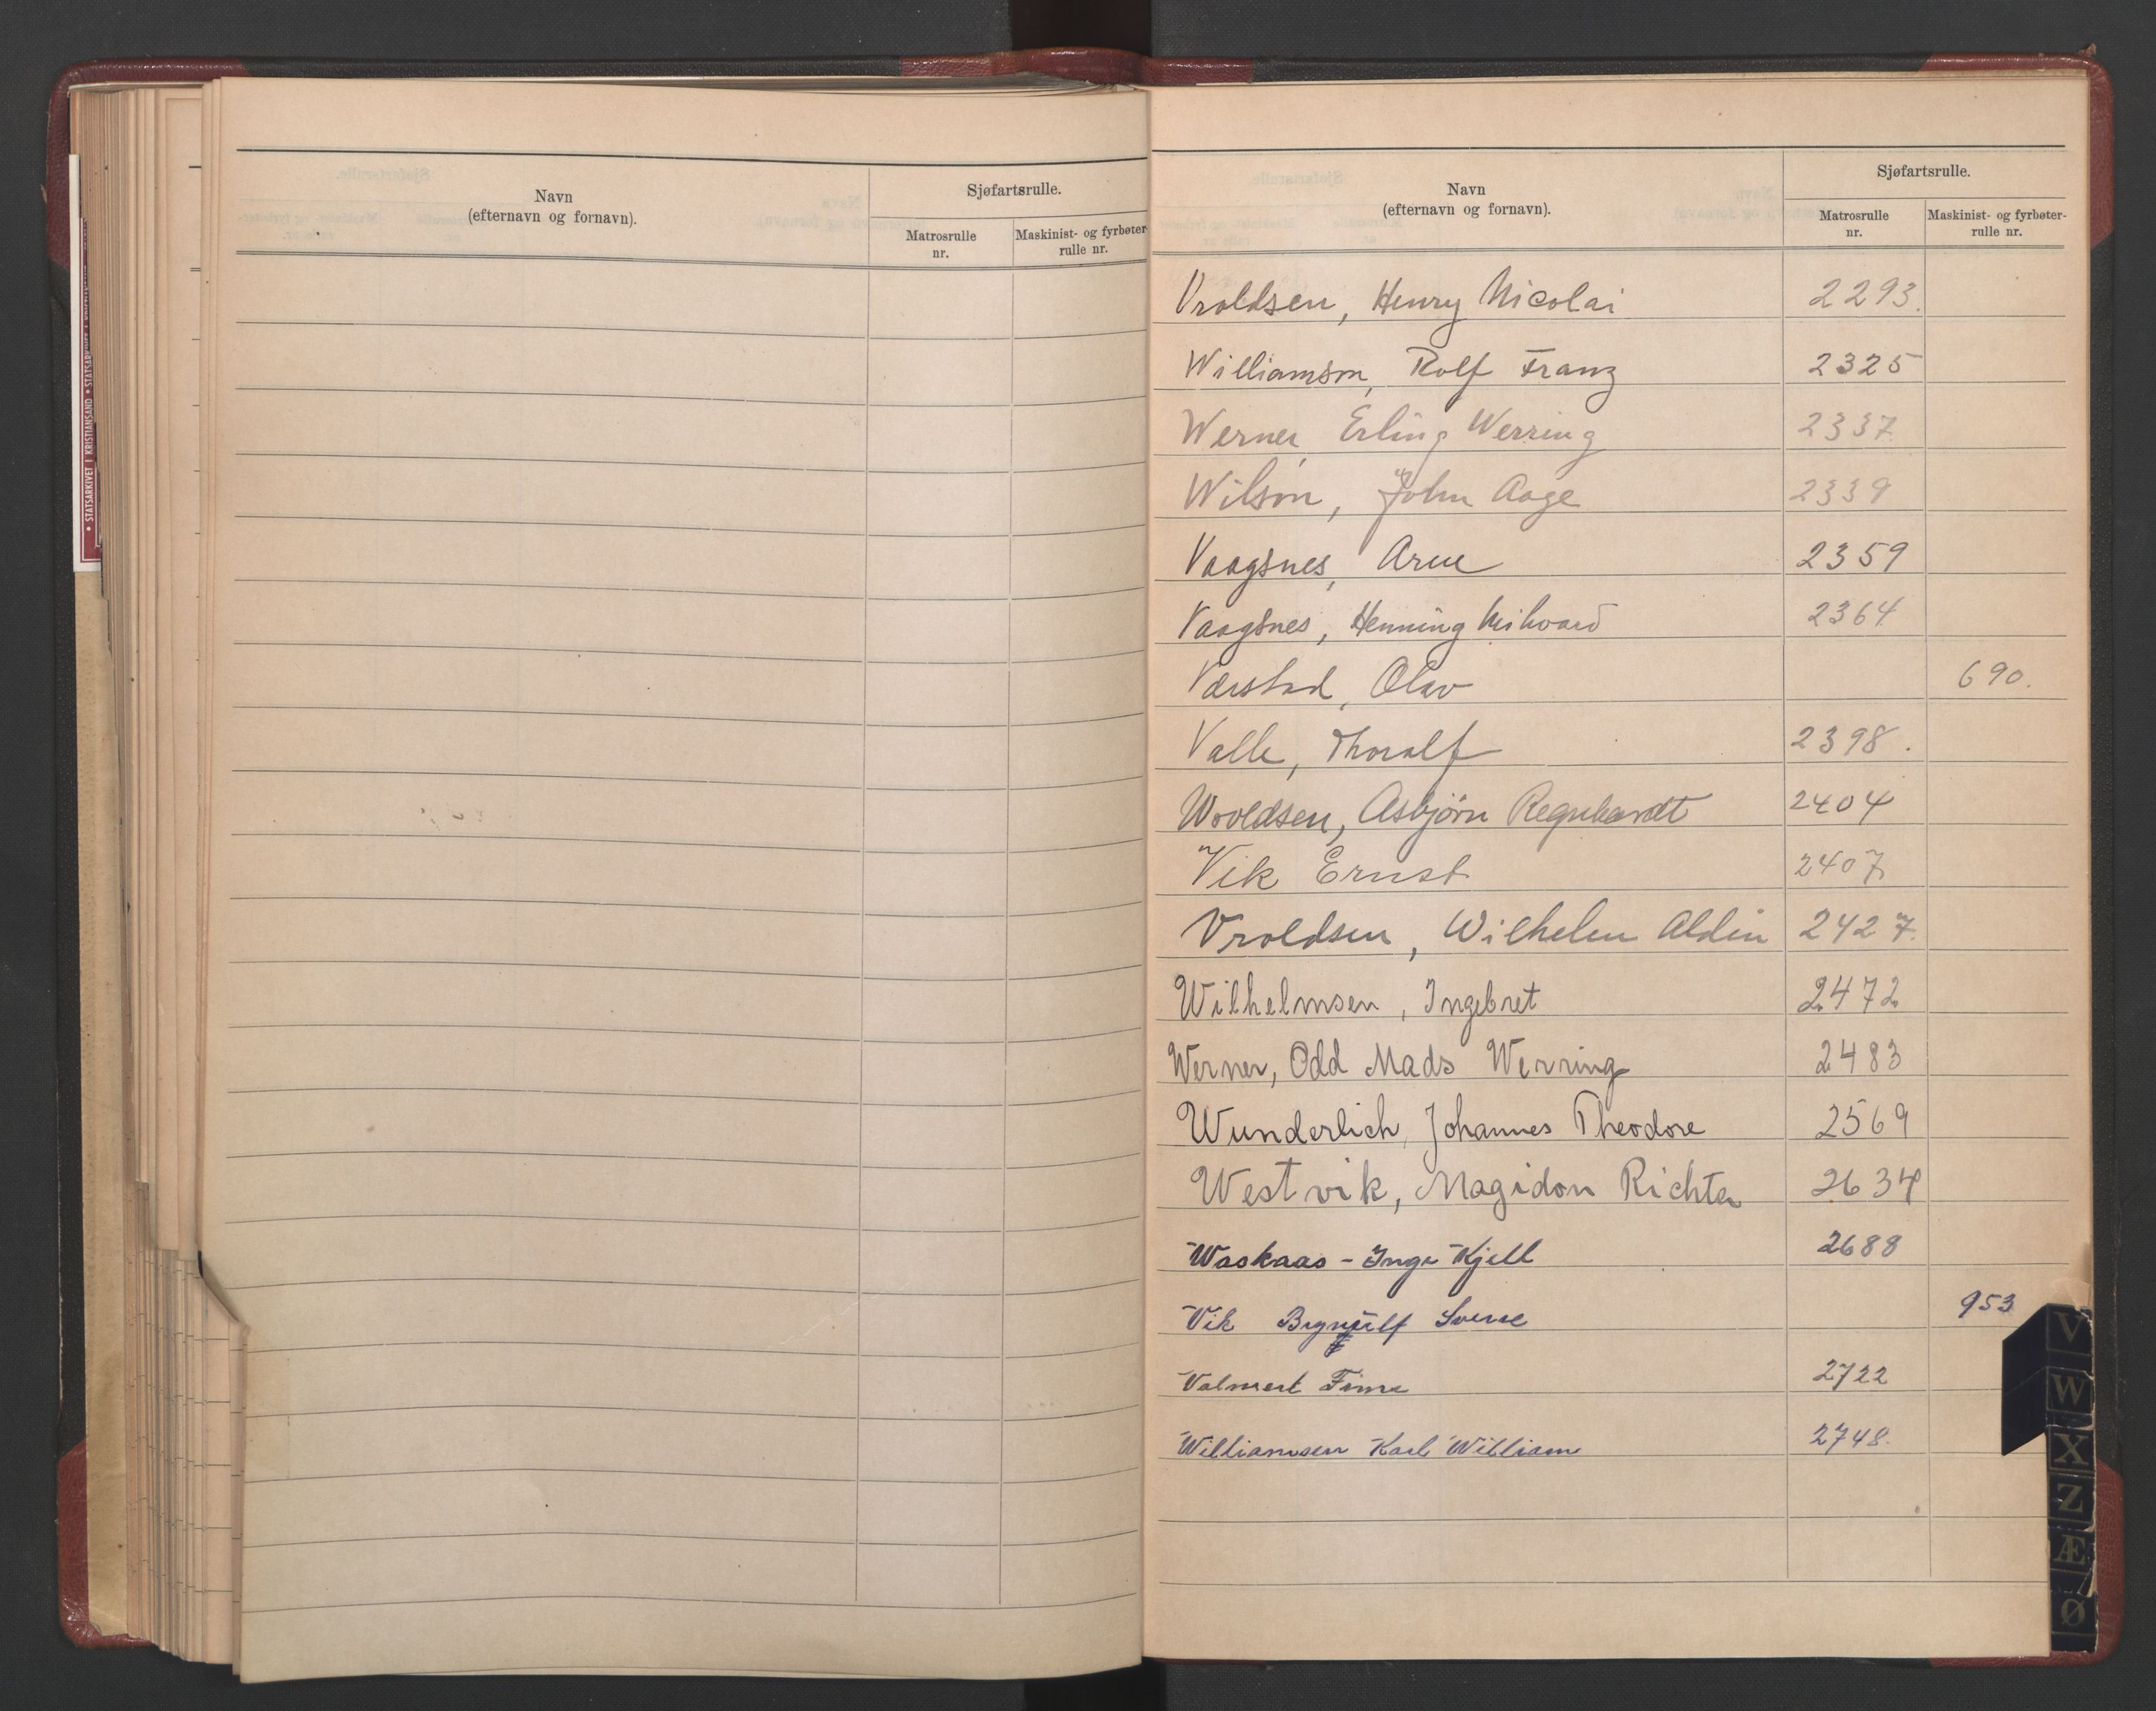 Navn
(efternavn og fornavn).
Sjøfartsrulle.
Matrosrulle
nr.
Maskinist- og fyrbøter-
rulle nr.
Navn
(efternavn og fornavn).
Sjøfartsrulle.
Matrosrulle
nr.
Maskinist- og fyrbøter-
rulle nr.
Vroldsen, Henry Nicolai 2293.
Williamson, Rolf Franz 2325
Werner, Erling Werring 2337
Wilson, John Aage 2339
Vaagsnes, Arne 2359
Vaagsnes, Henning 2364
Værstad, Olav 690.
Valle, Thoralf 2398.
Wroldsen, Asbjörn 2404
Vik Ernst 2407
Vroldsen, Wilhelm Aldin 2427.
Wilhelmsen, Ingebret 2472
Werner, Odd Mads Werring 2483
Wunderlich, Johannes Theodore 2569
Westvik, Magidon Richter 2634
Waskaas - Inge Kjell 2688
Vik Brynjulf Sverre 953
Valmert 2722
Williamsen Karl William 2748.
V
W
X
Z
Æ
Ø
• STATSARKIVET I KRISTIANSAND • STATSARKIVET I